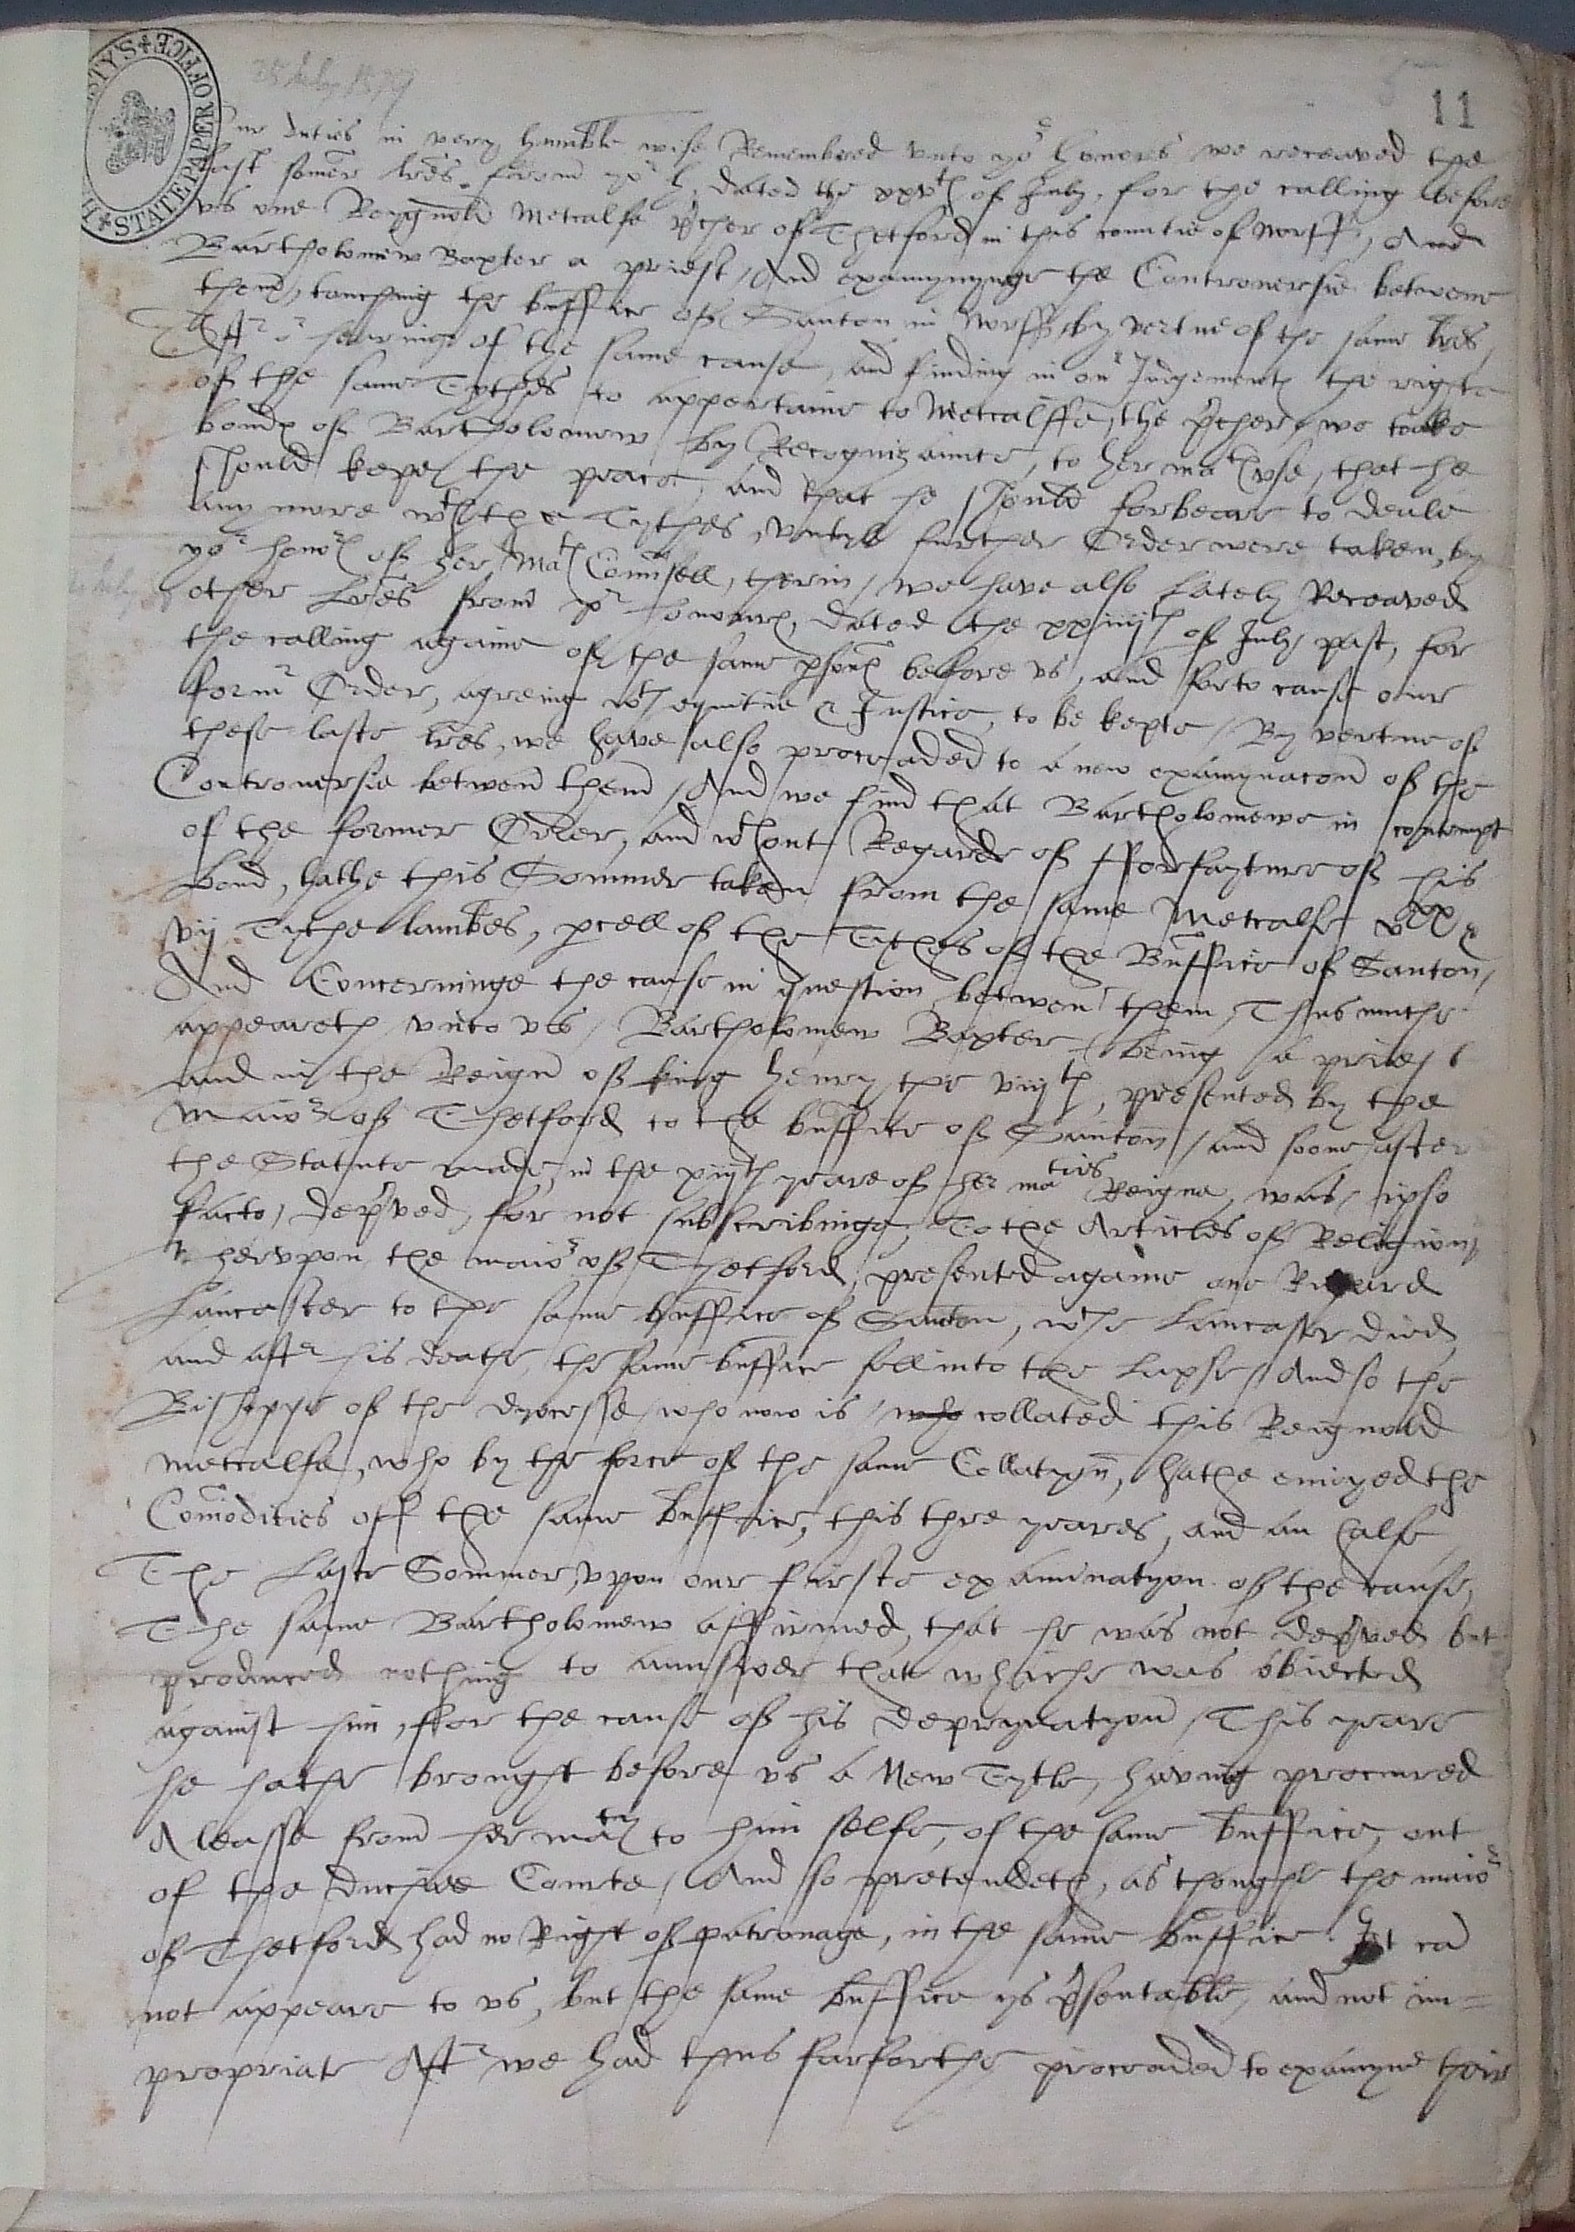 25 July 1579
11
STATE PAPER OFFICE
Our duties in very humble wise Remembred vnto yor honors we receaved the
last somer lres from yor h. dated the xxvth of July, for the calling before
vs one Reygnold Metcalfe vsher of Thetford in this countie of Norff, And
Bartholomew Baxter a priest, And examynynge the Controuersie betwene
them, touching the bnffice of Santon in Norff, by vertue of the same lres,
Aftr or hearinge of the same cause, and finding in our Judgement the righte
of the same Tythes to appertaine to Metcalffe, the vsher, we tooke
bond of Bartholomew by Recognizaunce, to her matie vse, that he
should kepe the peace, and that he should forbeare to deale
any more wth the Tythes, vntyll further Order were taken, by
yor honors of her Mats Counsell, therin, we have also lately Receaved
other lres from yor honours, dated the xxiiijth of July past, for
the calling againe of the same psons before vs, and for to cause our
formr Order, agreing wth equitie & Justice, to be kepte, By vertue of
these laste lres, we have also proceaded to a new examynacon of the
Controuersie betwen them, And we find that Bartholomewe in contempt
of the former Order, and wthout Regarde of fforfayture of his
bond, hathe this Sommer taken from the same Metcalfe vxx &
vij Tythe lambes, pcell of the Tythes of the Bnffice of Santon,
And Concerninge the cause in question betwen them, Thus muche
appeareth vnto vs, Bartholomew Baxter, being a priest
and in the Reign of king henry the viijth, presented by the
Maior of Thetford to the bnffice of Santon, and soone after
the Statute made, in the xiijth yeare of her maties Reigne, was, ipso
facto, depved, for not subscribinge, To the Articles of Religion,
Whervpon the maior of Thetford, presented againe one Richard
Lancaster to the same bnffice of Santon, wche Lancaster died,
and aftr his deathe, the same bnffice fell into the Lapse, And so the
Bishoppe of the dyocesse, who now is, who collated this Reignold
Metcalfe, who by the force of the same Collatyon, hathe enioyed the
Comodities off the same bnffice, this thre yeares, and an halfe
The laste Sommer, vpon our firste examinatyon of the cause,
The same Bartholomew affirmed, that he was not depved but
produced nothing to aunswer that whiche was obiected
against him, ffor the cause of his depryuatyon, This yeare
he hathe brought before vs a New Tytle, having procured
A leasse from her matie to him selfe, of the same bnffice, out
of the Duchie Courte, And so pretendeth, as thoughe the maior
of Thetford had no Right of patronage, in the same bnffice. It can
not appeare to vs, but the same bnffice ys psentable, and not im=
propriate Aftr we had thus farforthe proceaded to examyne their